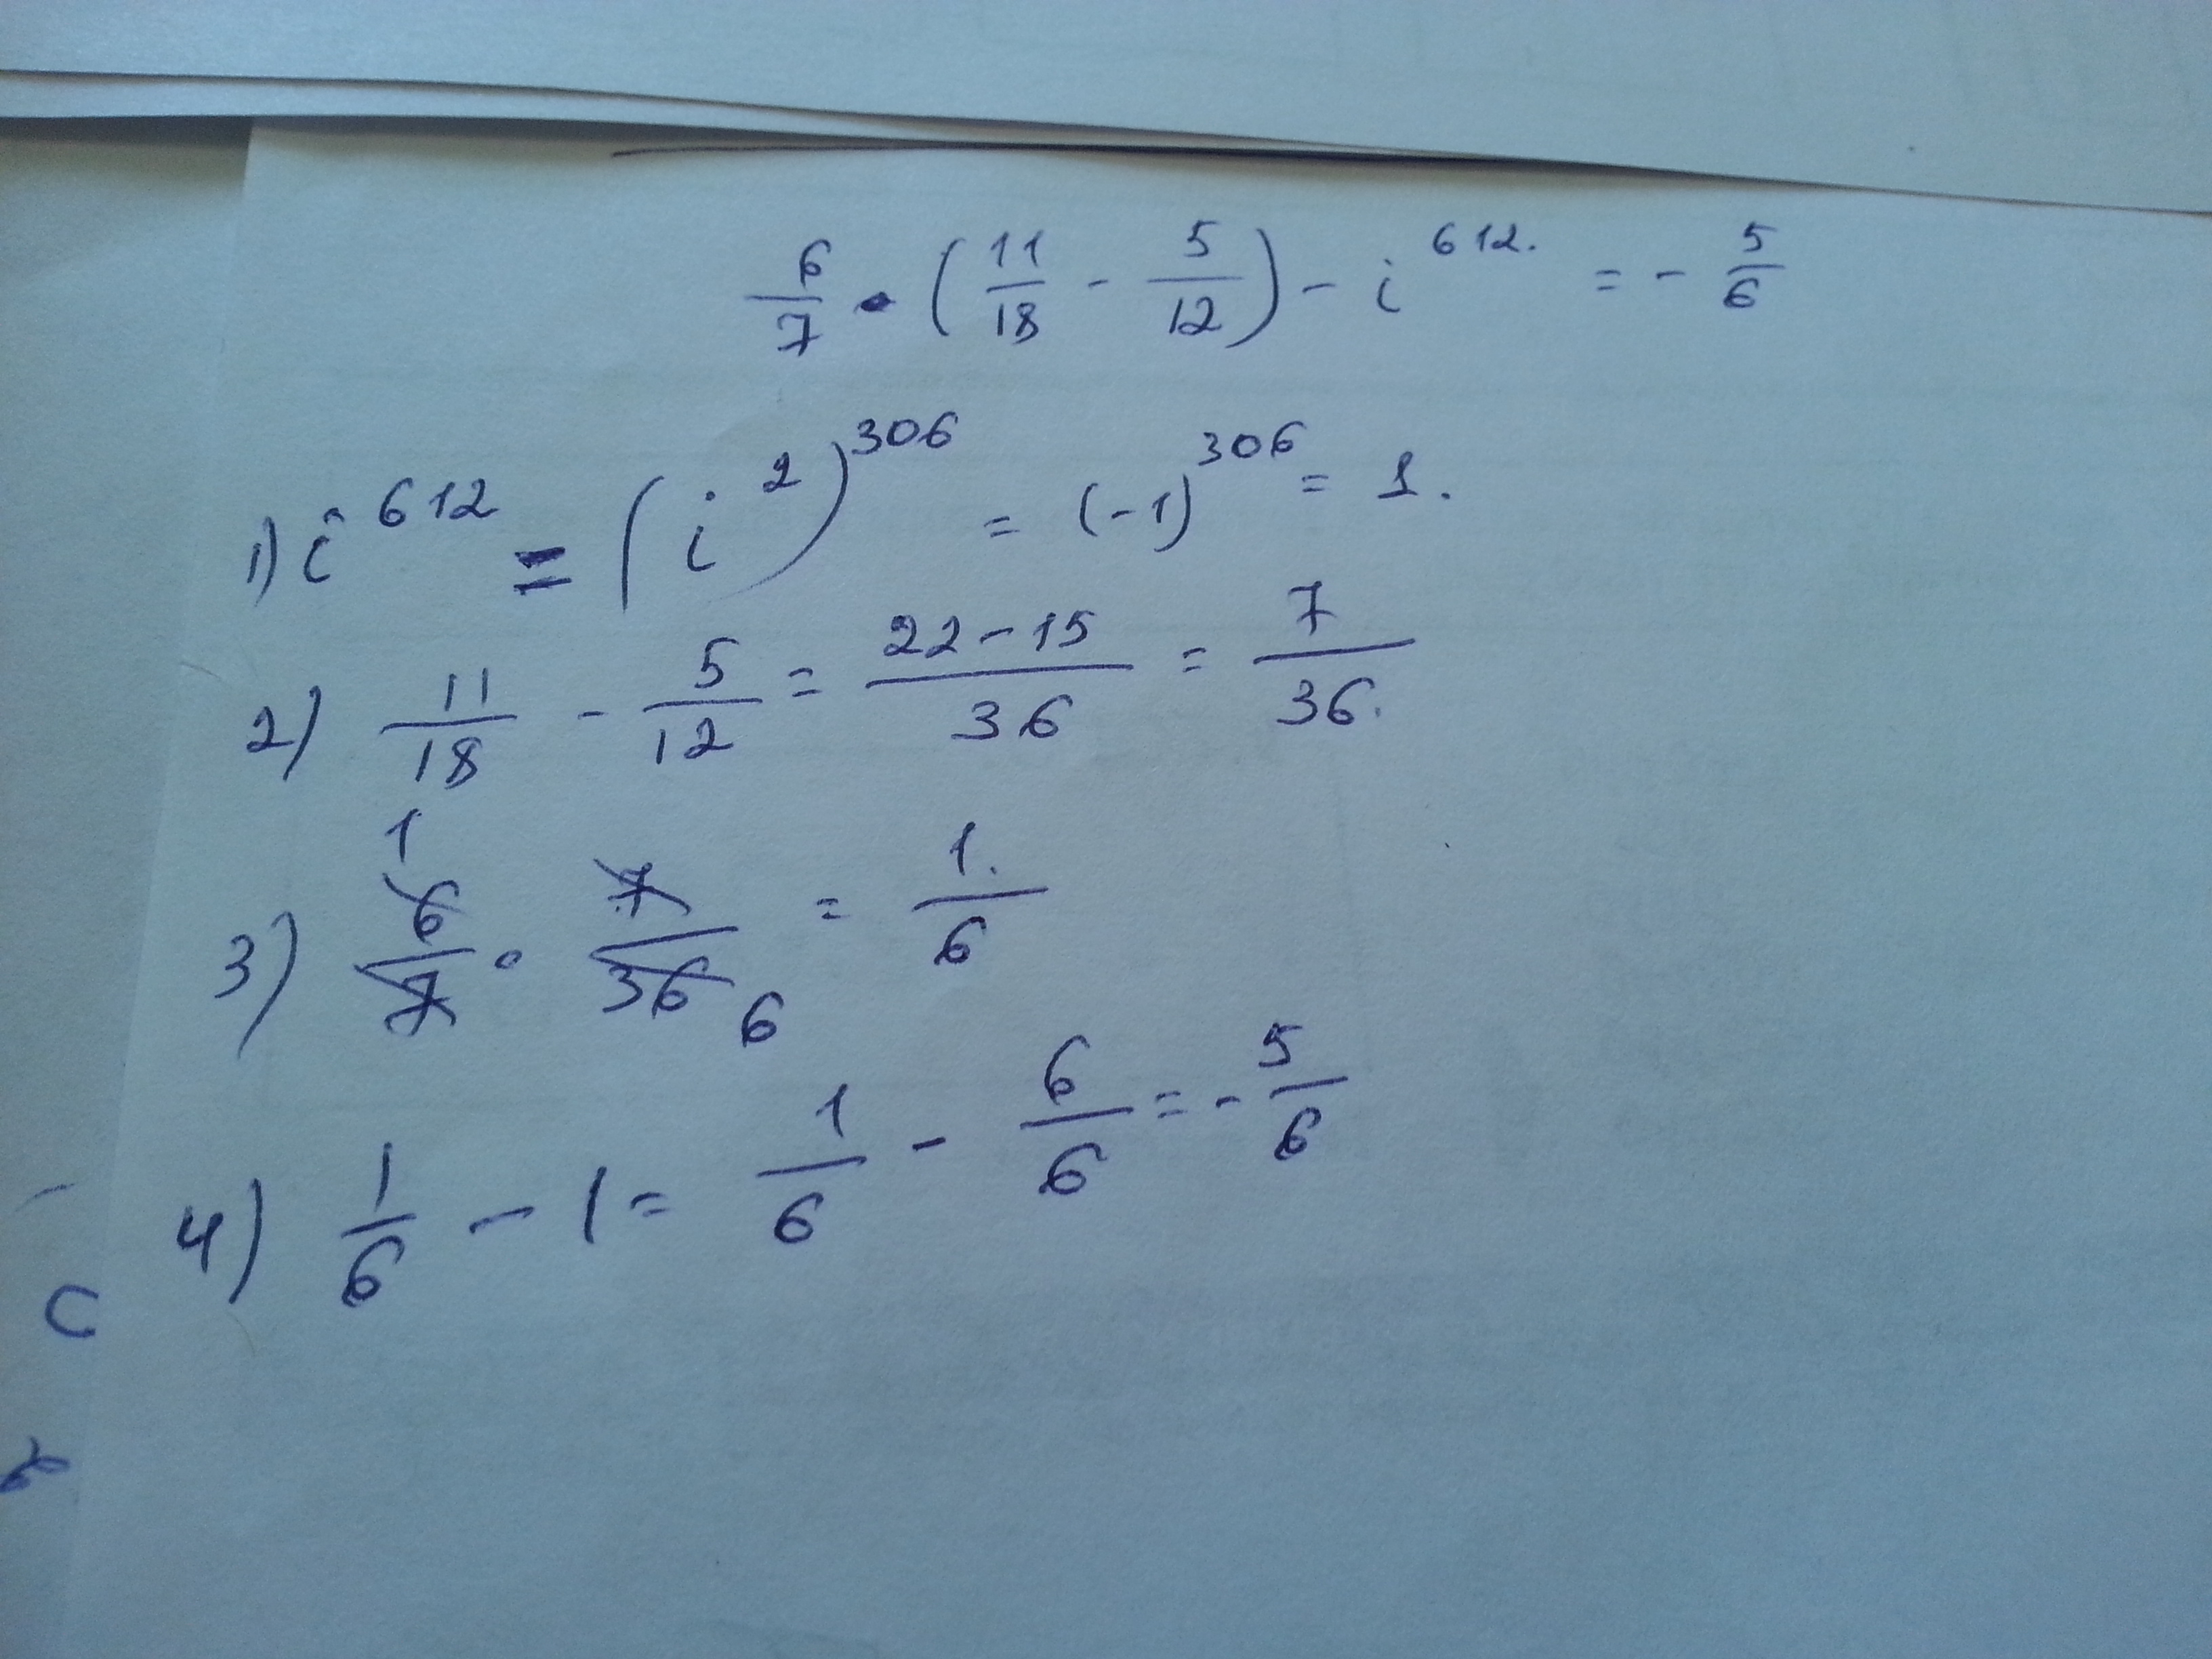 6/7 · (11/18 - 5/12) - i^612. = - 5/6
1) i^612 = (i^2)^306 = (-1)^306 = 1.
2) 11/18 - 5/12 = 22-15/36 = 7/36.
1
3) 6/7 · 7/36 6 = 1./6
4) 1/6 - 1 = 1/6 - 6/6 = - 5/6
C